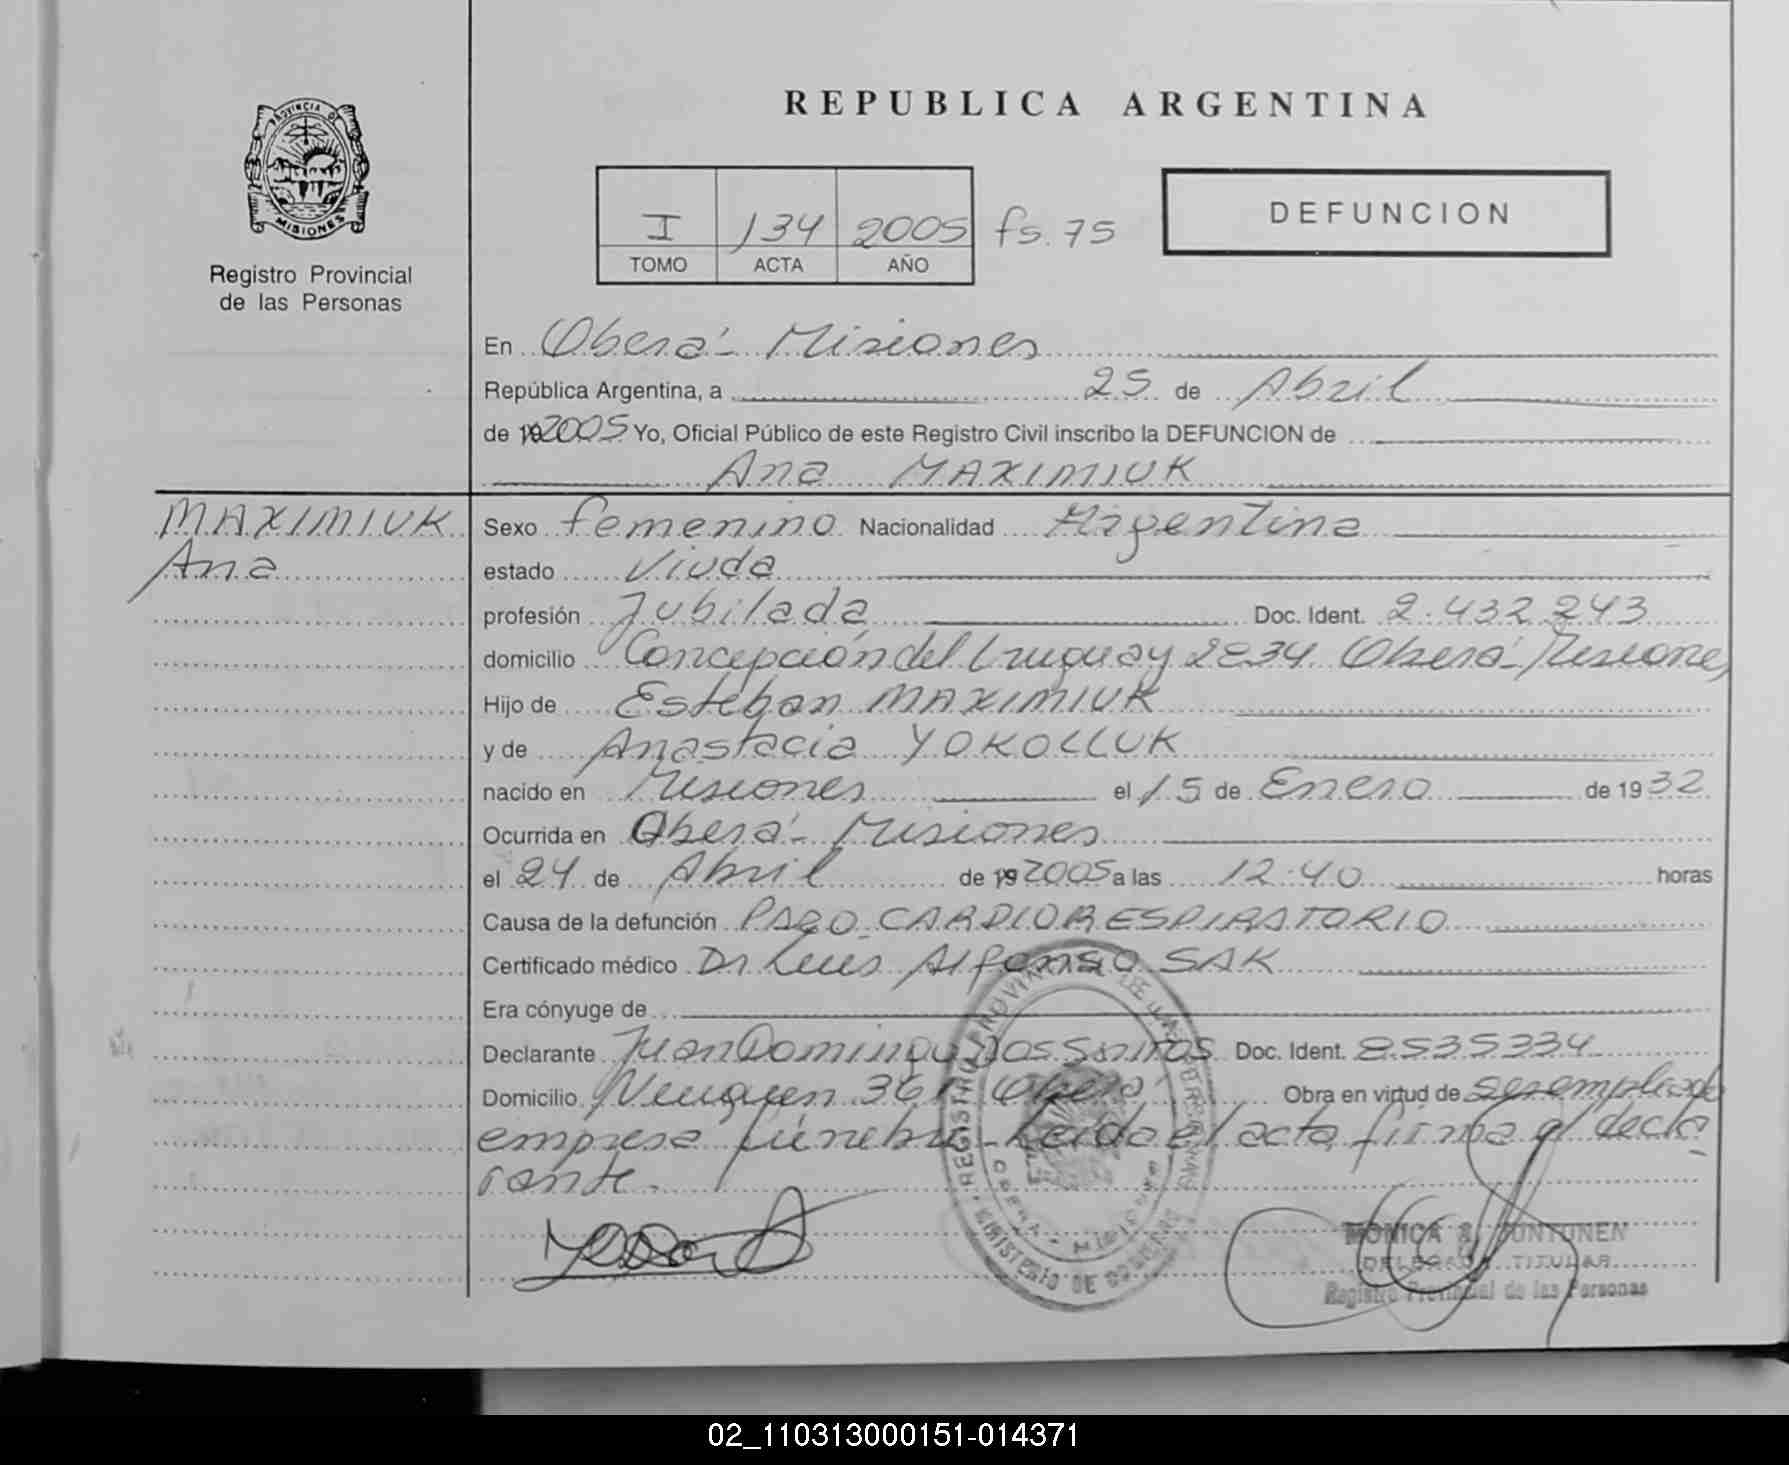 PROVINCIA DE
MISIONES
Registro Provincial
de las Personas
REPUBLICA ARGENTINA
I 134 2005 fs. 75
TOMO ACTA AÑO
DEFUNCION
En Oberá - Misiones
República Argentina, a 25 de Abril
de 19 2005 Yo, Oficial Público de este Registro Civil inscribo la DEFUNCION de
Ana MAXIMIUK
MAXIMIUK
Ana
Sexo femenino Nacionalidad Argentina
estado Viuda
profesión Jubilada Doc. Ident. 2.432.243
domicilio Concepción del Uruguay Oberá - Misiones
Hijo de Esteban MAXIMIUK
y de Anastacia YOKOLLUK
nacido en Misiones el 15 de Enero de 1932
Ocurrida en Oberá - Misiones
el 24 de Abril de 19 2005 a las 12:40 horas
Causa de la defunción PARO CARDIORESPIRATORIO
Certificado médico Dr Luis Alfonso SAK
Era cónyuge de
Declarante Juan Domingo Dos Santos Doc. Ident. 8535334
Domicilio Neuquen 361 Oberá Obra en virtud de ser empleado
empresa fúnebre - Leida el acta, firma el decla
rante.
REGISTRO PROVINCIAL DE LAS PERSONAS
OBERA - MISIONES
MINISTERIO DE GOBIERNO
MONICA PUNTUNEN
DELEGADA TITULAR
Registro Provincial de las Personas
02_110313000151-014371